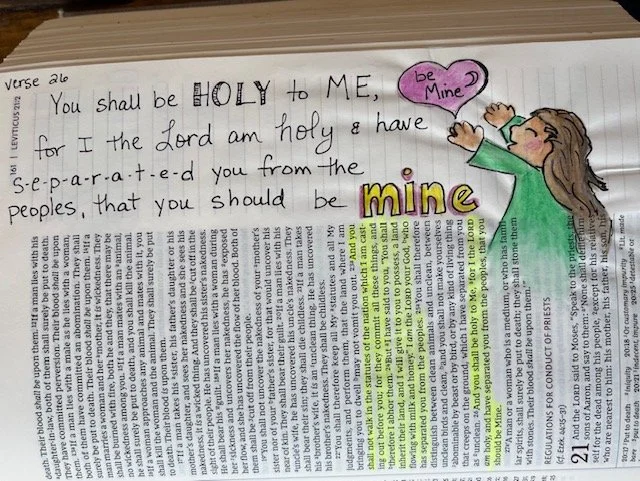 verse 26
You shall be HOLY to ME,
for I the Lord am holy & have
s-e-p-a-r-a-t-e-d you from the
peoples, that you should be mine
be
Mine
161 | LEVITICUS 21:12
death. Their blood shall be upon them.
daughter-in-law, both of them shall surely be put to death.
They have committed perversion. Their blood shall be upon
them. ¹³If a man lies with a male as he lies with a woman,
both of them have committed an abomination. They shall
surely be put to death. Their blood shall be upon them. ¹⁴If a
man marries a woman and her mother, it is wickedness. They
shall be burned with fire, both he and they, that there may be
no wickedness among you. ¹⁵If a man mates with an animal,
he shall surely be put to death, and you shall kill the animal.
¹⁶If a woman approaches any animal and mates with it, you
shall kill the woman and the animal. They shall surely be put
to death. Their blood is upon them.
¹⁷If a man takes his sister, his father's daughter or his
mother's daughter, and sees her nakedness and she sees his
nakedness, it is a wicked thing. And they shall be cut off in the
sight of their people. He has uncovered his sister's nakedness.
He shall bear his guilt. ¹⁸If a man lies with a woman during
her sickness and uncovers her nakedness, he has exposed
her flow, and she has uncovered the flow of her blood. Both of
them shall be cut off from their people.
¹⁹You shall not uncover the nakedness of your mother's
sister nor of your father's sister, for that would uncover his
near of kin. They shall bear their guilt. ²⁰If a man lies with his
uncle's wife, he has uncovered his uncle's nakedness. They
shall bear their sin; they shall die childless. ²¹If a man takes
his brother's wife, it is an unclean thing. He has uncovered
his brother's nakedness. They shall be childless.
²²You shall therefore keep all My statutes and all My
judgments, and perform them, that the land where I am
bringing you to dwell may not vomit you out. ²³And you
shall not walk in the statutes of the nation which I am cast-
ing out before you; for they commit all these things, and
therefore I abhor them. ²⁴But I have said to you, "You shall
inherit their land, and I will give it to you to possess, a land
flowing with milk and honey." I am the LORD your God, who
has separated you from the peoples. ²⁵You shall therefore
distinguish between clean animals and unclean, between
unclean birds and clean, and you shall not make yourselves
abominable by beast or by bird, or by any kind of living thing
that creeps on the ground, which I have separated from you
as unclean. ²⁶And you shall be holy to Me, for I the LORD
am holy, and have separated you from the peoples, that you
should be Mine.
²⁷A man or a woman who is a medium, or who has famil-
iar spirits, shall surely be put to death; they shall stone them
with stones. Their blood shall be upon them.'"
REGULATIONS FOR CONDUCT OF PRIESTS
(cf. Ezek. 44:15–31)
21 And the LORD said to Moses, "Speak to the priests, the
sons of Aaron, and say to them: 'None shall defile him-
self for the dead among his people, ²except for his relatives
who are nearest to him: his mother, his father, his son,